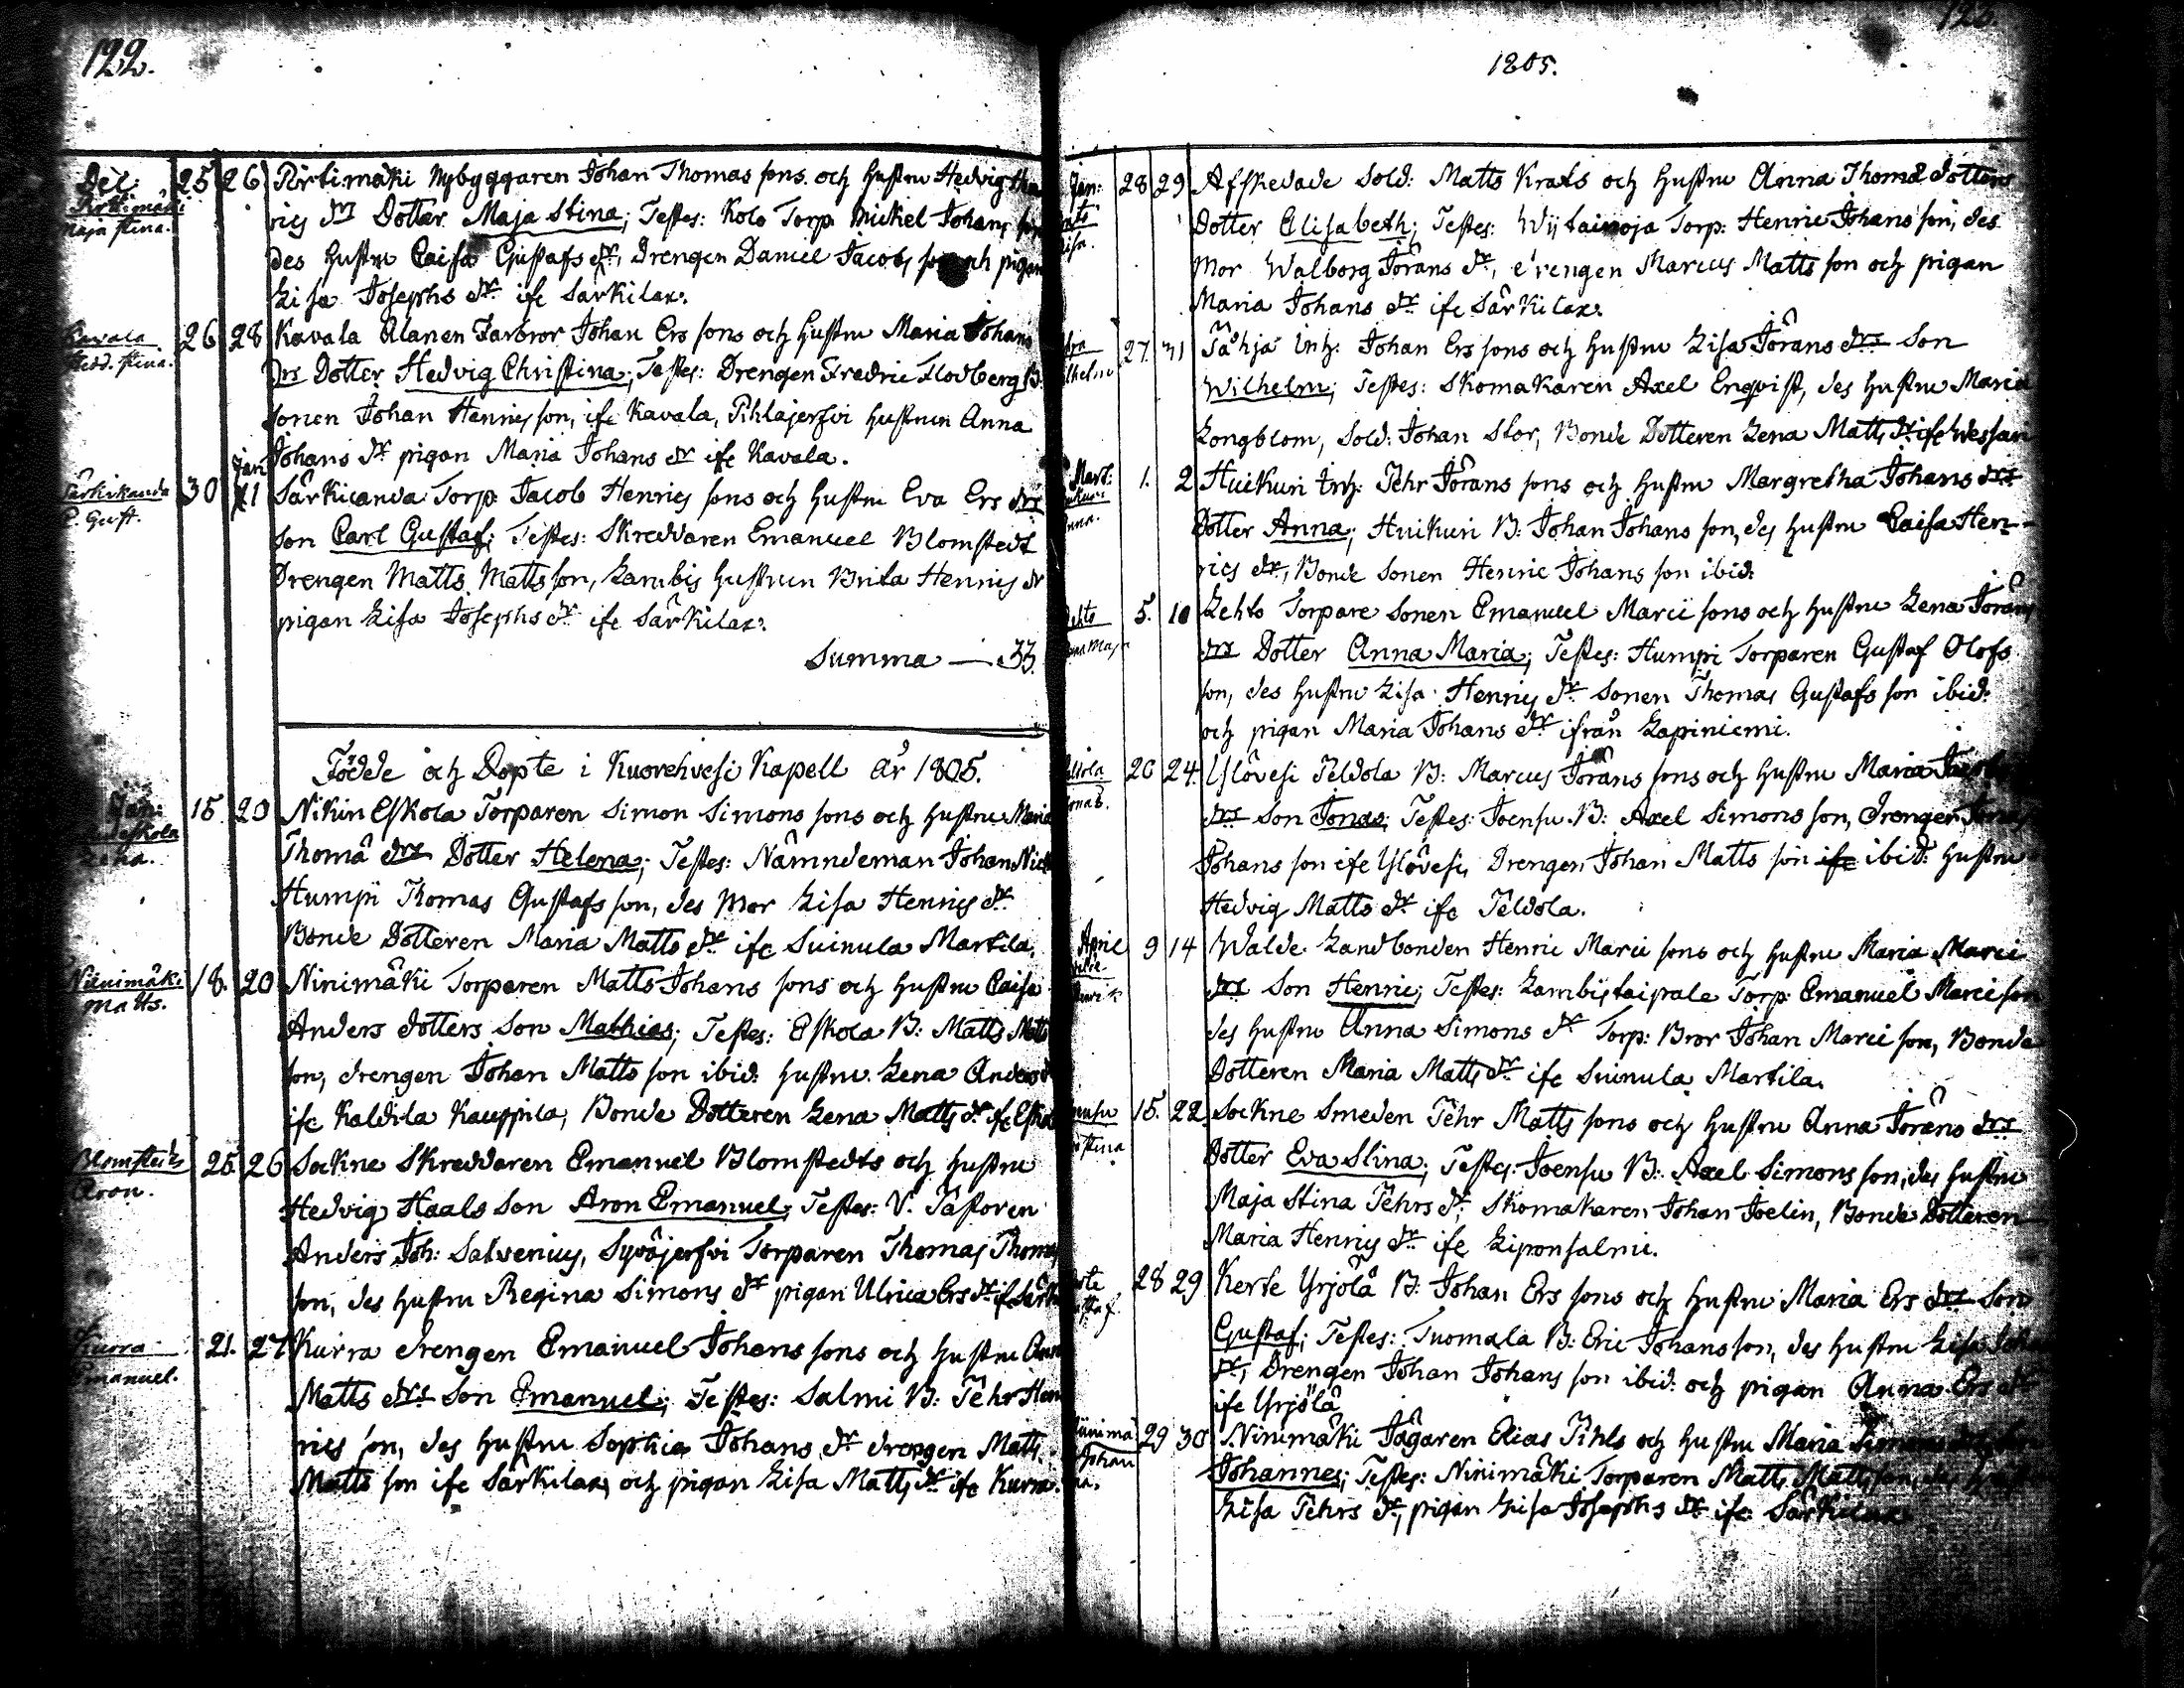 122.
Dec: 25 26 Pirtimäki Nybyggaren Johan Thomas sons och hustru Hedvig Hen
Pirttimäki
Maja Stina.
rics drs Dotter Maja Stina; Testes: Kolo Torp. Mickel Johans son
des hustru Caisa Gustafs dr, Drengen Daniel Jacobs son och pigan
Lisa Josephs dr ifr Särkilax.
Kavala 26 28 Kavala Alanen Farbror Johan Ers sons och hustru Maria Johans
Hedd. Stina.
drs Dotter Hedvig Christina; Testes: Drengen Fredric Flodberg B:
sonen Johan Henrics son, ifr Kavala, Pihlajerfvi hustrun Anna
Johans dr pigan Maria Johans dr ifr Kavala.
Särkikanda 30 Jan 1 Särkicanda Torp: Jacob Henrics sons och hustru Eva Ers drs
C. Gust.
Son Carl Gustaf; Testes: Skreddaren Emanuel Blomstedt
Drengen Matts Matts son, Lambis hustrun Brita Henrics dr
pigan Lisa Josephs dr ifr Särkilax.
Summa — 33.
Födde och Döpte i Kuorehvesi Kapell år 1805.
Jan: 15 20 Nikun Eskola Torparen Simon Simons sons och hustru Maria
Eskola
Lena.
Thomæ drs Dotter Helena; Testes: Nämndeman Johan Nick
Humpi Thomas Gustafs son, des Mor Lisa Henrics dr
Bonde Dotteren Maria Matts dr ifr Suinula Markila.
Niinimäki 18. 20 Ninimäki Torparen Matts Johans sons och hustru Caisa
Matts.
Anders dotters Son Mathias; Testes: Eskola B: Matts Matts
son, drengen Johan Matts son ibid: hustru Lena Anders d
ifr Kaldila Kauppila, Bonde Dotteren Lena Matts dr ifr Esko
Blomstedts 25. 26 Sockne Skreddaren Emanuel Blomstedts och hustru
Aron.
Hedvig Haals Son Aron Emanuel; Testes: V. Pastoren
Anders Joh: Salvenius, Syväjerfvi Torparen Thomas Thomæ
son, des hustru Regina Simons dr pigan Ulrica Ers dr if. Särk
Kurra 21. 27 Kurra drengen Emanuel Johans sons och hustru Anna
Emanuel.
Matts drs Son Emanuel; Testes: Salmi B: Pehr Hen
rics son, des hustru Sophia Johans dr drengen Matts
Matts son ifr Särkilax och pigan Lisa Matts dr ifr Kurra.
1805.
Jan: 28 29 Afskedade Sold: Matts Krats och hustru Anna Thomæ dotters
Dotter Elisabeth; Testes: Wijtainoja Torp: Henric Johans son, des
Mor Walborg Jörans dr, drengen Marcus Matts son och pigan
Maria Johans dr ifr Särkilax.
27. 31 Pähjä Inh: Johan Ers sons och hustru Lisa Jörans drs Son
Wilhelm; Testes: Skomakaren Axel Enqvist, des hustru Maria
Longblom, Sold: Johan Stor, Bonde Dotteren Lena Matts dr ifr Wessan
Mart: 1. 2 Huikuri Inh: Pehr Jörans sons och hustru Margretha Johans drs
Dotter Anna; Huikuri B: Johan Johans son, des hustru Caisa Hen-
rics dr, Bonde Sonen Henric Johans son ibid:
Lehto 5. 10 Lehto Torpare Sonen Emanuel Marci sons och hustru Lena Jörans
Anna Maja
drs Dotter Anna Maria; Testes: Humpi Torparen Gustaf Olofs
son, des hustru Lisa Henrics dr Sonen Thomas Gustafs son ibid:
och pigan Maria Johans dr ifrån Lapiniemi.
20 24. Ylövesi Peldola B: Marcus Jörans sons och hustru Maria
Jonas.
drs Son Jonas; Testes: Joensu B: Axel Simons son, Drengen
Johans son ifr Ylövesi, Drengen Johan Matts son ifr ibid: hustru
Hedvig Matts dr ifr Peldola.
April 9 14 Walde Landbonden Henric Marci sons och hustru Maria Marci
Henrik
drs Son Henric; Testes: Lambistaipale Torp: Emanuel Marci son
des hustru Anna Simons dr Torp: Bror Johan Marci son, Bonde
Dotteren Maria Matts dr ifr Suinula Markila.
Joensu 15. 22 Sockne Smeden Pehr Matts sons och hustru Anna Jörans drs
Stina
Dotter Eva Stina; Testes: Joensu B: Axel Simons son, des hustru
Maja Stina Pehrs dr Skomakaren Johan Joelin, Bonde Dotteren
Maria Henrics dr ifr Liponsalmi.
28 29 Kerte Yrjölä B: Johan Ers sons och hustru Maria Ers drs Son
Gustaf; Testes: Tuomala B: Eric Johans son, des hustru Lisa Joha
dr, Drengen Johan Johans son ibid: och pigan Anna Ers dr
ifr Yrjölä
Niinimä 29 30 Ninimäki Jägaren Elias Pihls och hustru Maria
Johan
Johannes; Testes: Ninimäki Torparen Matts Matts son, des
Lisa Pehrs dr, pigan Lisa Josephs dr ifr Särkilax